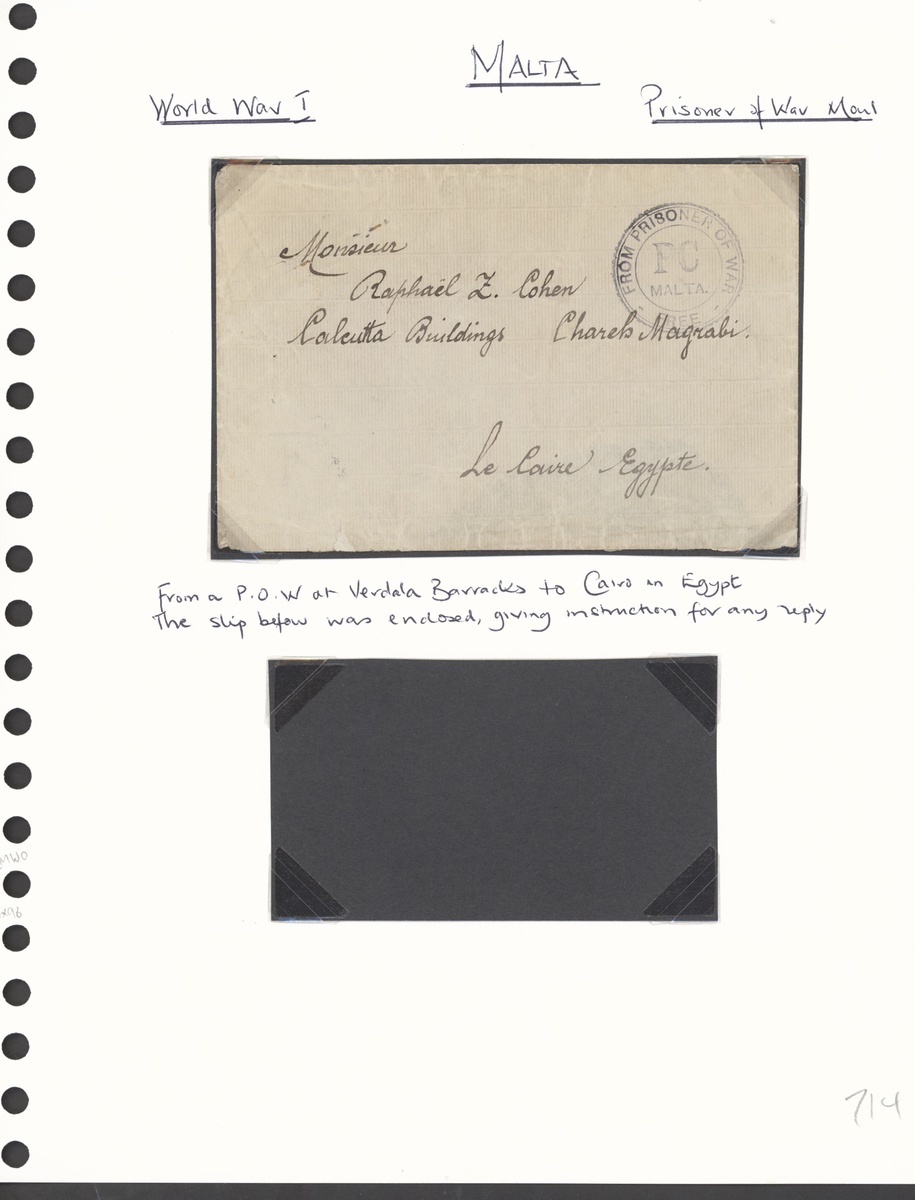 MALTA
World War I
Prisoner of War Mail
Monsieur
Raphaël Z. Cohen
Calcutta Buildings Chareh Magrabi.
Le Caire Egypte.
FROM PRISONER OF WAR
PC
MALTA.
FREE
From a P.O.W at Verdala Barracks to Cairo in Egypt
The slip below was enclosed, giving instruction for any reply
714